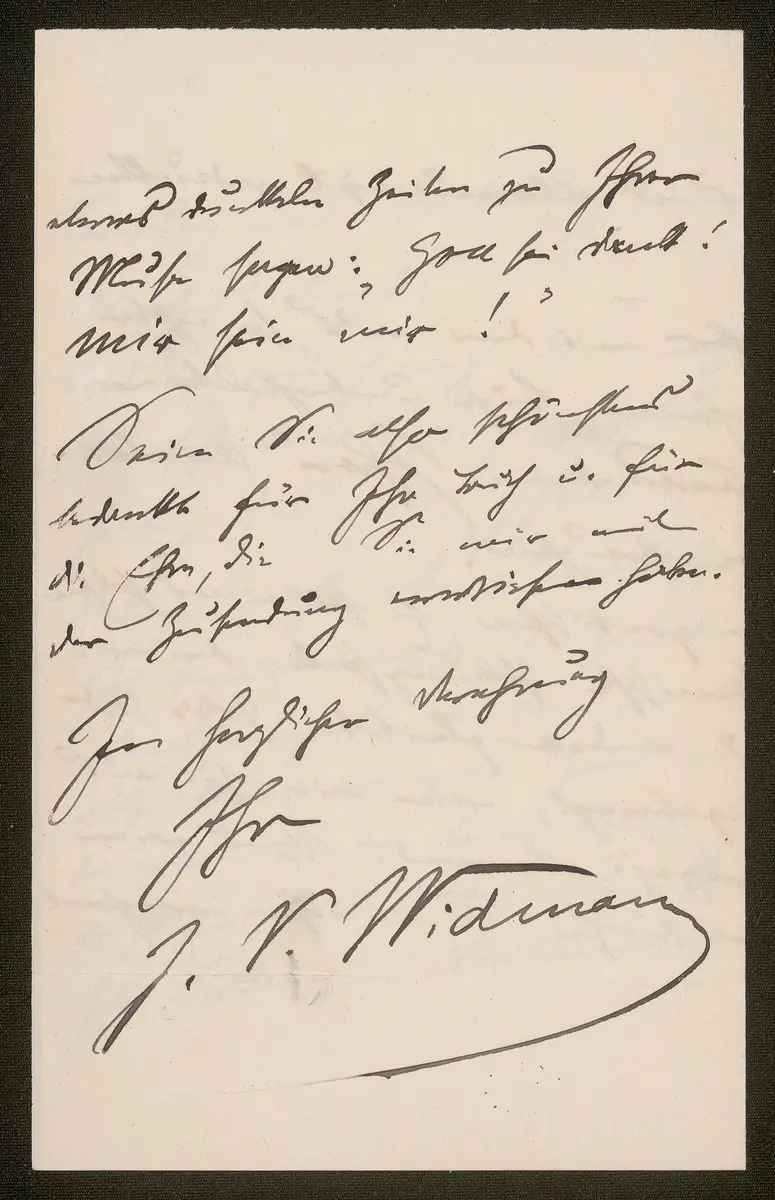 etwas dunkeln Zeilen zu Ihrer
Muse sagen: „Gott sei dank!
wir sein wir!"
Seien Sie also schönstens
bedankt für Ihr Buch u. für
die Ehre, die Sie mir mit
der Zusendung erwiesen haben.
In herzlicher Verehrung
Ihr
J. V. Widmann